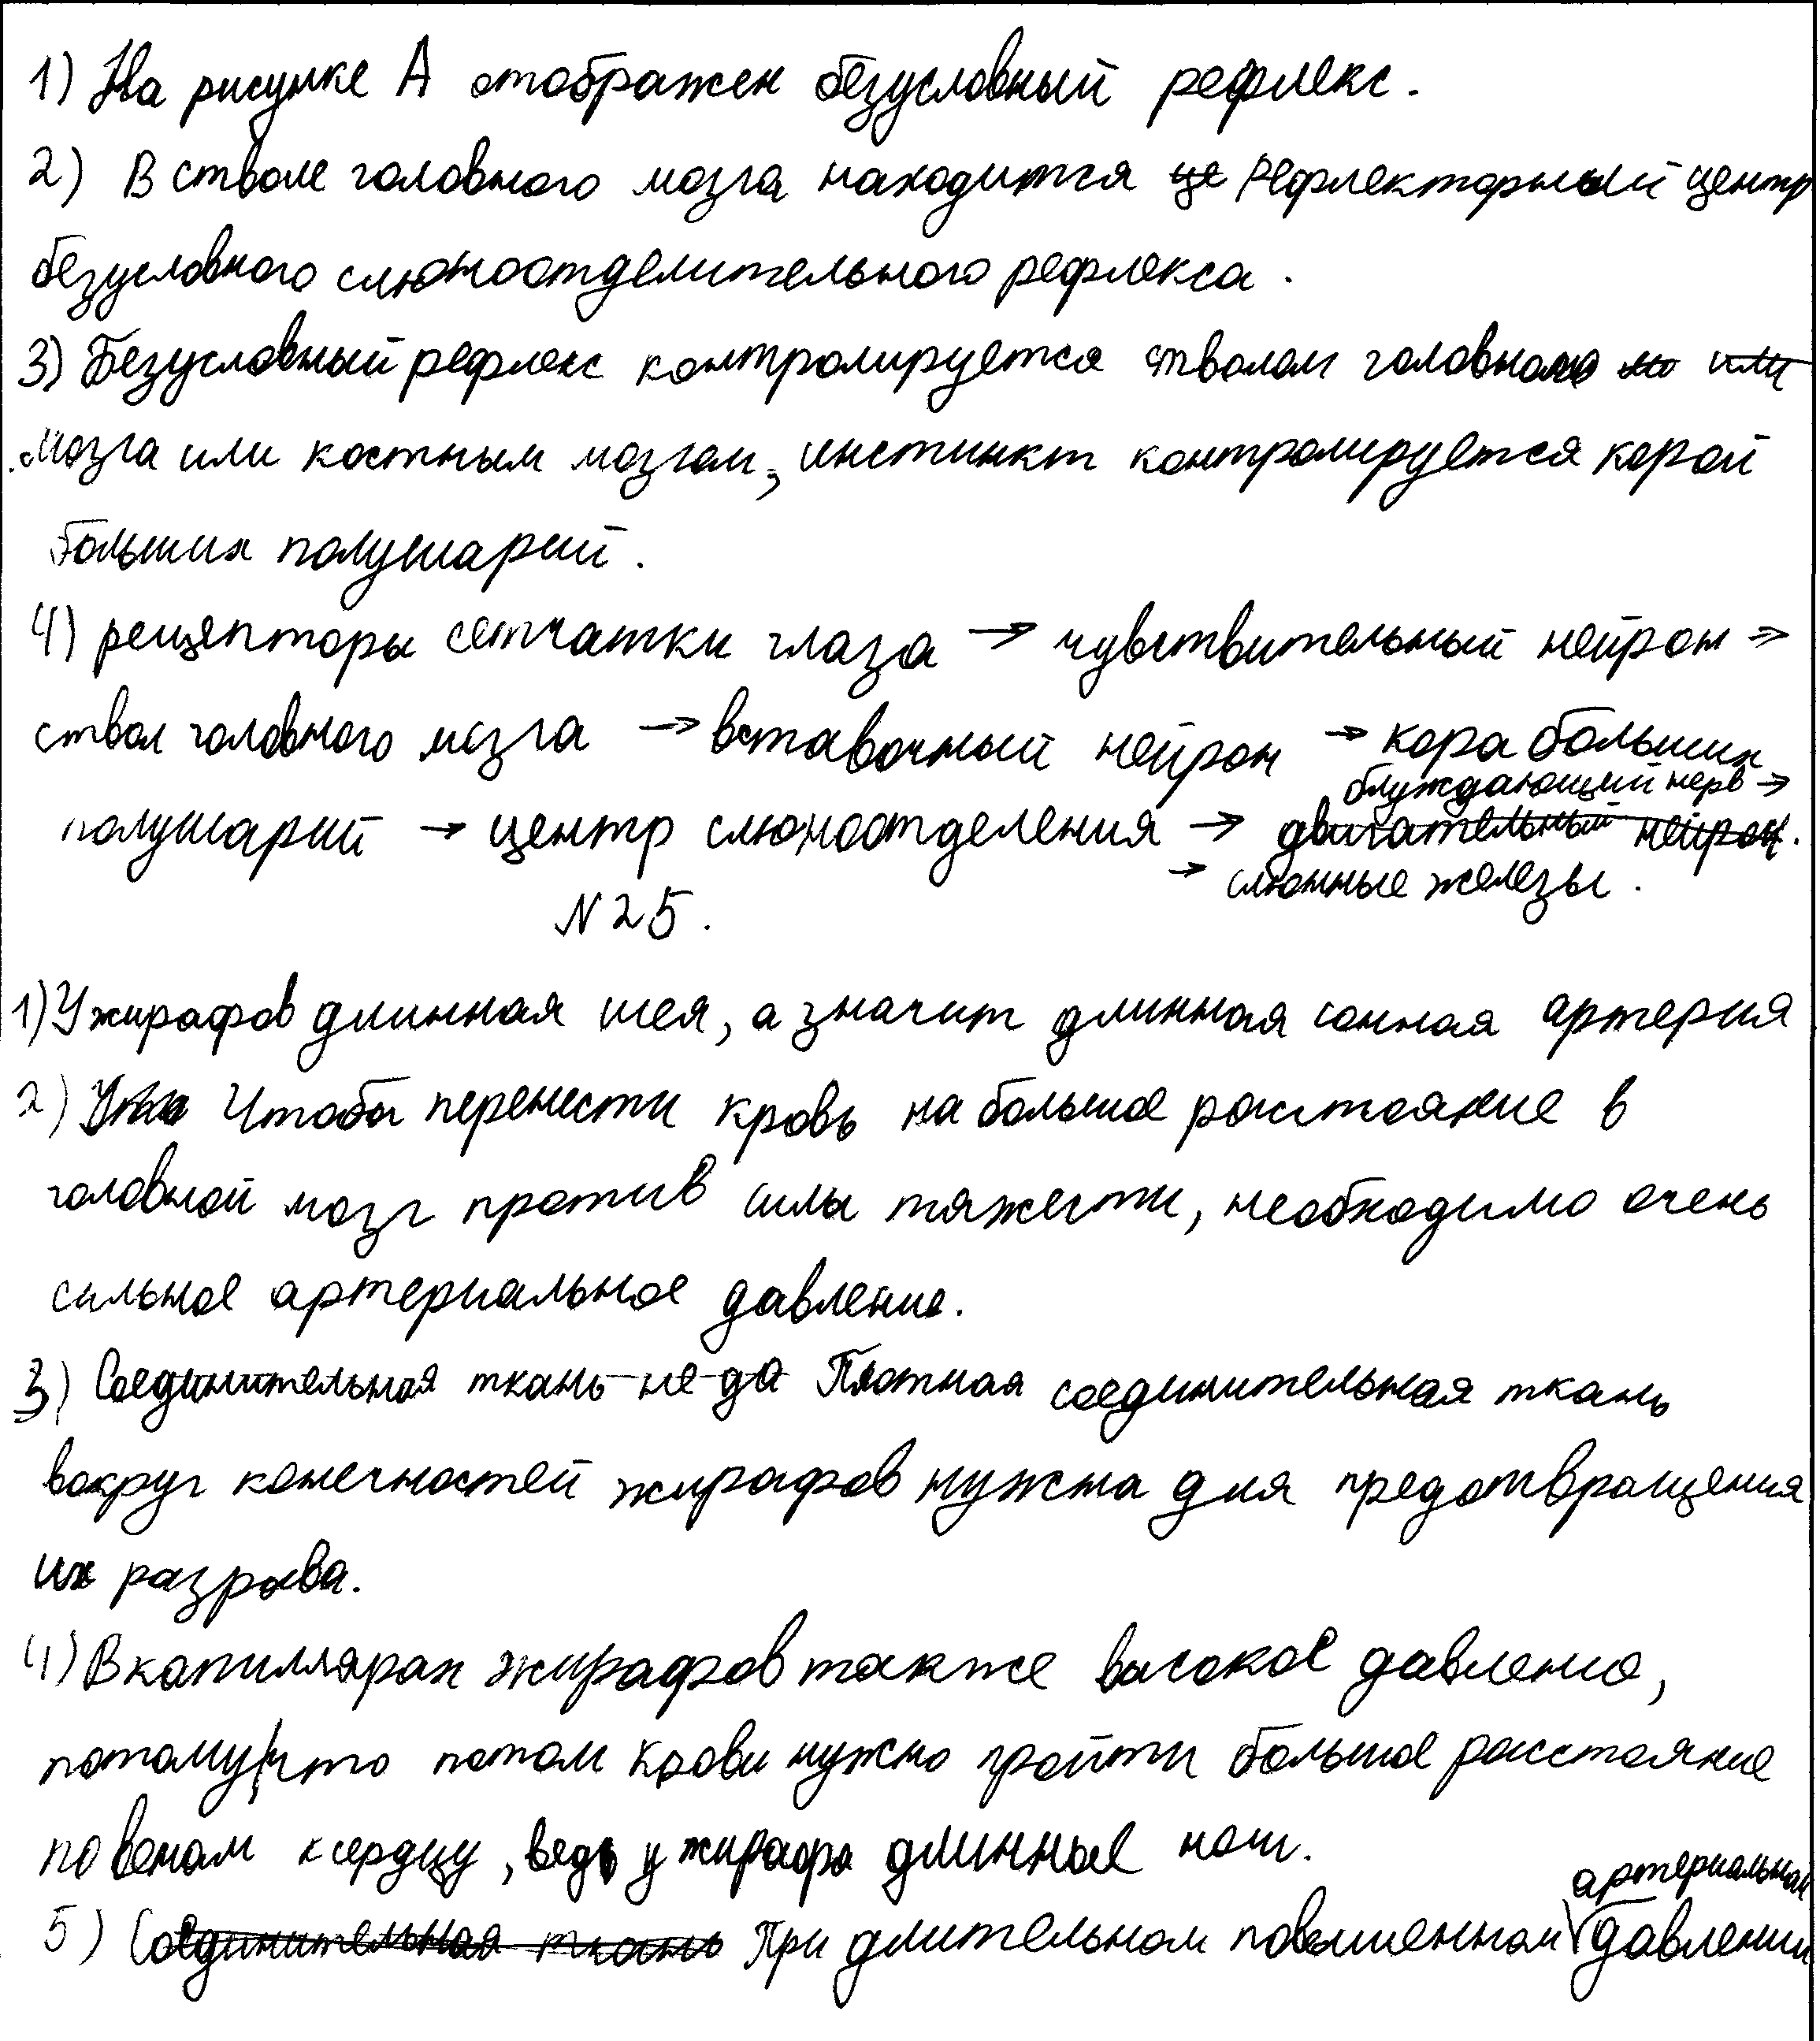 1) На рисунке А отображен безусловный рефлекс.
2) В стволе головного мозга находится це рефлекторный центр
безусловного слюноотделительного рефлекса.
3) Безусловный рефлекс контролируется стволом головного м или
мозга или костным мозгом, инстинкт контролируется корой
больших полушарий.
4) рецепторы сетчатки глаза → чувствительный нейрон →
ствол головного мозга → вставочный нейрон → кора больших
блуждающий нерв →
полушарий → центр слюноотделения → двигательный нейрон.
→ слюнные железы.
N 25.
1) У жирафов длинная шея, а значит длинная сонная артерия
2) Чтобы перенести кровь на большое расстояние в
головной мозг против силы тяжести, необходимо очень
сильное артериальное давление.
3) Соединительная ткань не да Плотная соединительная ткань
вокруг конечностей жирафов нужна для предотвращения
их разрыва.
4) В капиллярах жирафов также высокое давление,
потому что потом крови нужно пройти большое расстояние
по венам к сердцу, ведь у жирафа длинные ноги.
артериальном
5) Соединительная ткань При длительном повышенном давлении